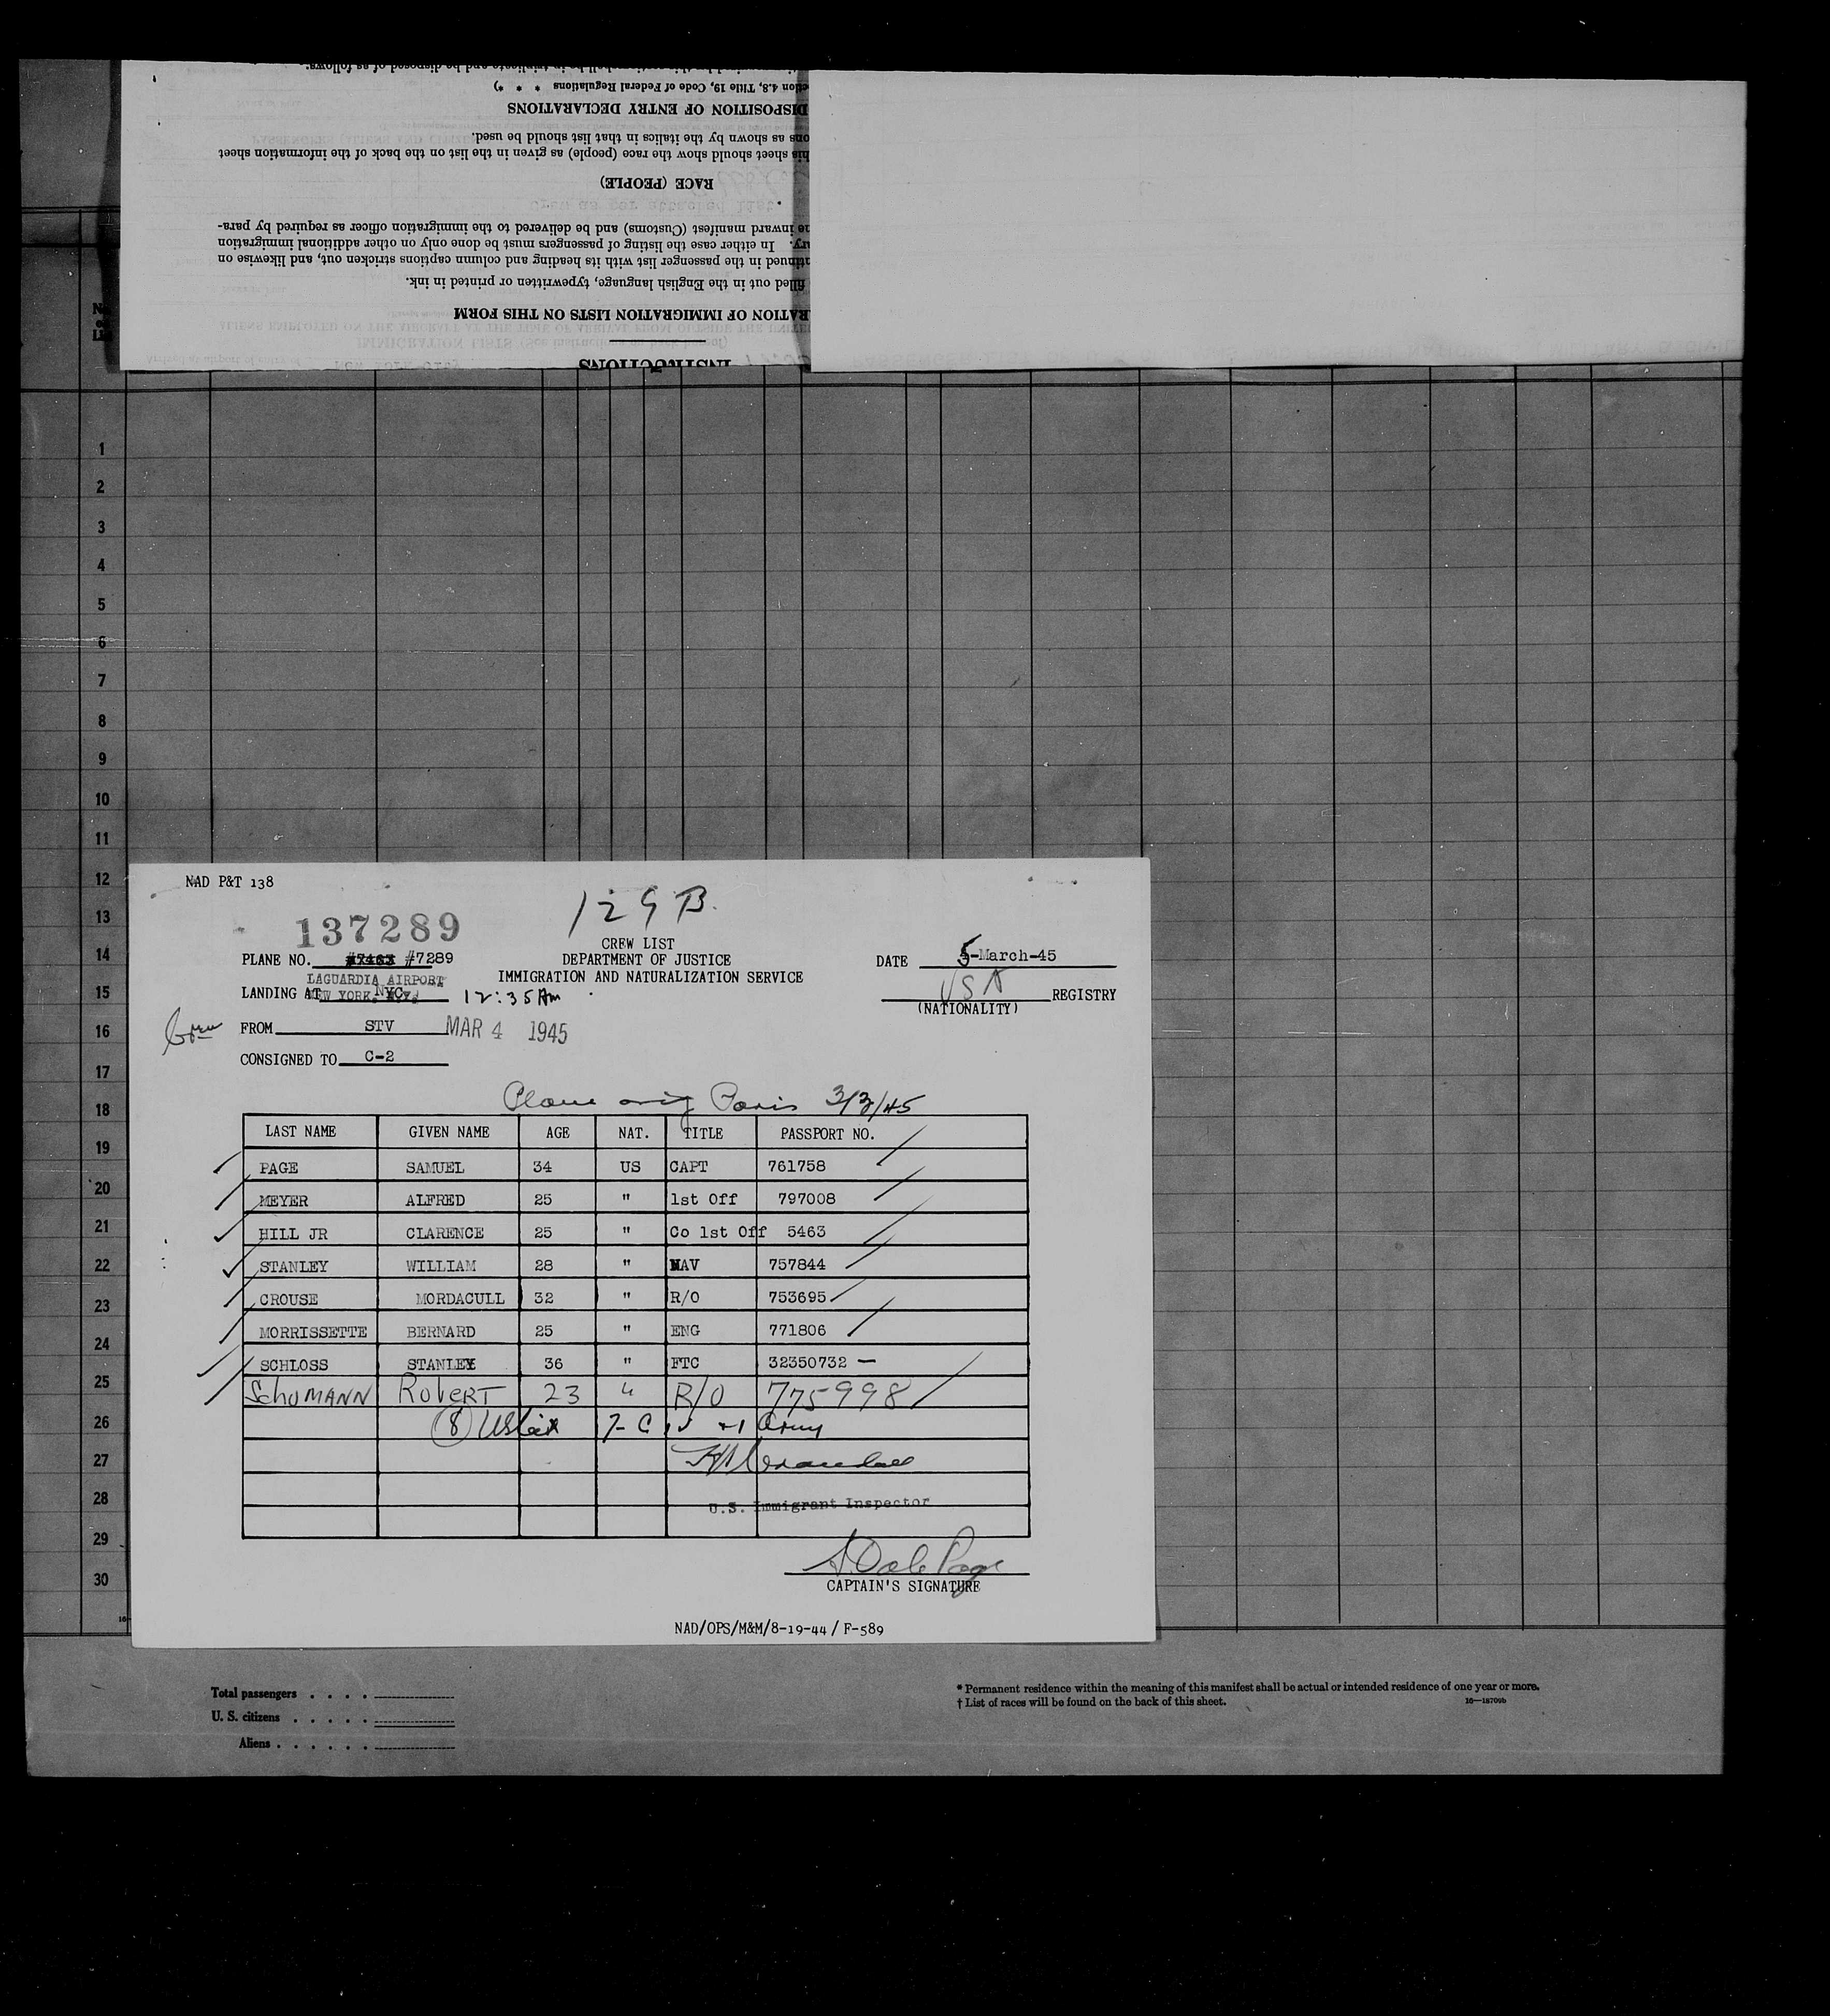 INSTRUCTIONS
RATION OF IMMIGRATION LISTS ON THIS FORM
filled out in the English language, typewritten or printed in ink.
tinued in the passenger list with its heading and column captions stricken out, and likewise on
ry. In either case the listing of passengers must be done only on other additional immigration
ne inward manifest (Customs) and be delivered to the immigration officer as required by para-
RACE (PEOPLE)
his sheet should show the race (people) as given in the list on the back of the information sheet
ons as shown by the italics in that list should be used.
DISPOSITION OF ENTRY DECLARATIONS
ction 4.8, Title 19, Code of Federal Regulations * * *)
1
2
3
4
5
6
7
8
9
10
11
12
13
14
15
16
17
18
19
20
21
22
23
24
25
26
27
28
29
30
NAD P&T 138
129 B.
137289
CREW LIST
PLANE NO. #7463 #7289 DEPARTMENT OF JUSTICE DATE 5-March-45
LAGUARDIA AIRPORT IMMIGRATION AND NATURALIZATION SERVICE USA
LANDING AT NEW YORK, N.Y. NYC 12:35 Am REGISTRY
(NATIONALITY)
FROM STV MAR 4 1945
CONSIGNED TO C-2
Plane orig Paris 3/3/45
LAST NAME GIVEN NAME AGE NAT. TITLE PASSPORT NO.
PAGE SAMUEL 34 US CAPT 761758
MEYER ALFRED 25 " 1st Off 797008
HILL JR CLARENCE 25 " Co 1st Off 5463
STANLEY WILLIAM 28 " NAV 757844
CROUSE MORDACULL 32 " R/O 753695
MORRISSETTE BERNARD 25 " ENG 771806
SCHLOSS STANLEY 36 " FTC 32350732 —
SchUMANN RobERT 23 " R/O 775998
(8) US 7- Civ +1 Army
U.S. Immigrant Inspector
S. Dale Page
CAPTAIN'S SIGNATURE
NAD/OPS/M&M/8-19-44 / F-589
Total passengers . . . .
U. S. citizens . . . . .
Aliens . . . . . .
* Permanent residence within the meaning of this manifest shall be actual or intended residence of one year or more.
† List of races will be found on the back of this sheet.